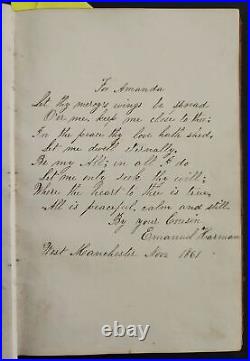 For Amanda
Let thy mercys wings be spread
Over me, keep me close to thee;
In the peace thy love hath shed,
Let me dwell eternally.
Be my All; in all I do
Let me only seek thy will;
Where the heart to thee is true,
All is peaceful, calm and still.
By your Cousin
Emanuel Harman
West Manchester Nov. 1861